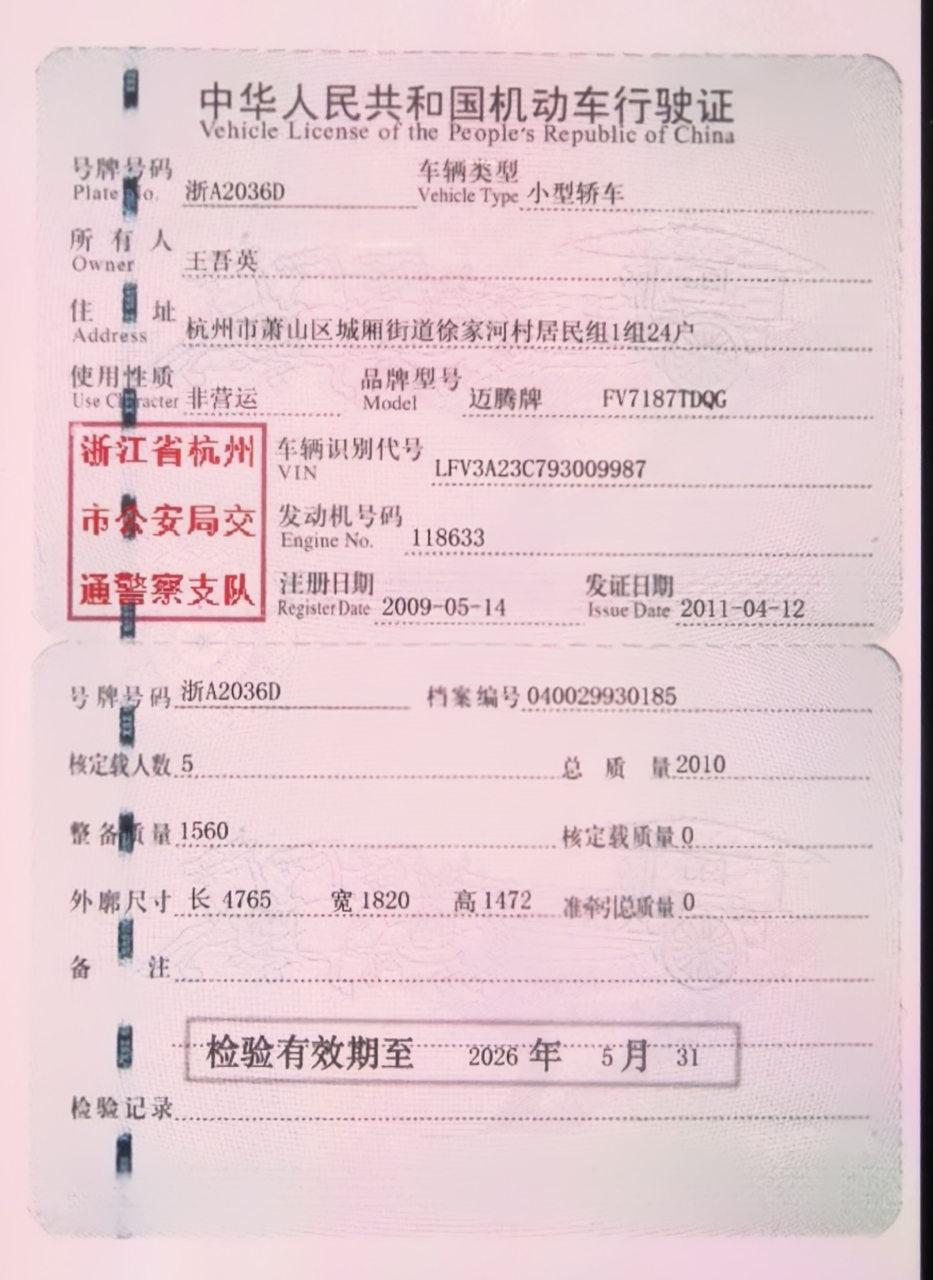 中华人民共和国机动车行驶证
Vehicle License of the People's Republic of China
号牌号码 浙A2036D 车辆类型 小型轿车
Plate No. Vehicle Type
所有人 王吾英
Owner
住址 杭州市萧山区城厢街道徐家河村居民组1组24户
Address
使用性质 非营运 品牌型号 迈腾牌 FV7187TDQG
Use Character Model
浙江省杭州
市公安局交
通警察支队
车辆识别代号 LFV3A23C793009987
VIN
发动机号码 118633
Engine No.
注册日期 2009-05-14 发证日期 2011-04-12
Register Date Issue Date
号牌号码 浙A2036D 档案编号 040029930185
核定载人数 5 总质量 2010
整备质量 1560 核定载质量 0
外廓尺寸 长 4765 宽 1820 高 1472 准牵引总质量 0
备注
检验有效期至 2026 年 5 月 31
检验记录